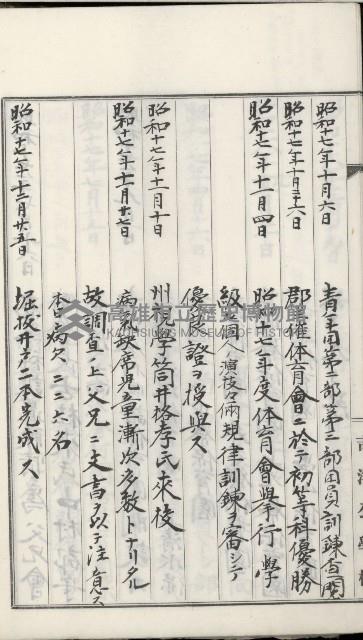 昭和十七年十月六日
青年團第一部第二部團員訓練查閱
昭和十七年十月二十六日
郡主催体育會ニ於テ初等科優勝
昭和十七年十一月四日
昭和十七年度体育會舉行、學
級個人ノ演技々倆規律訓練ヲ審シテ
優勝證ヲ授與ス
昭和十七年十一月十日
州視學筒井務孝氏來校
昭和十七年十一月廿七日
病氣缺席児童漸次多數トナリタル
故調查ノ上父兄ニ文書ヲ以テ注意ス
本日病欠二二六名
昭和十七年十二月廿五日
堀抜井戸二本完成ス
高雄市立歷史博物館
KAOHSIUNG MUSEUM OF HISTORY
父兄會